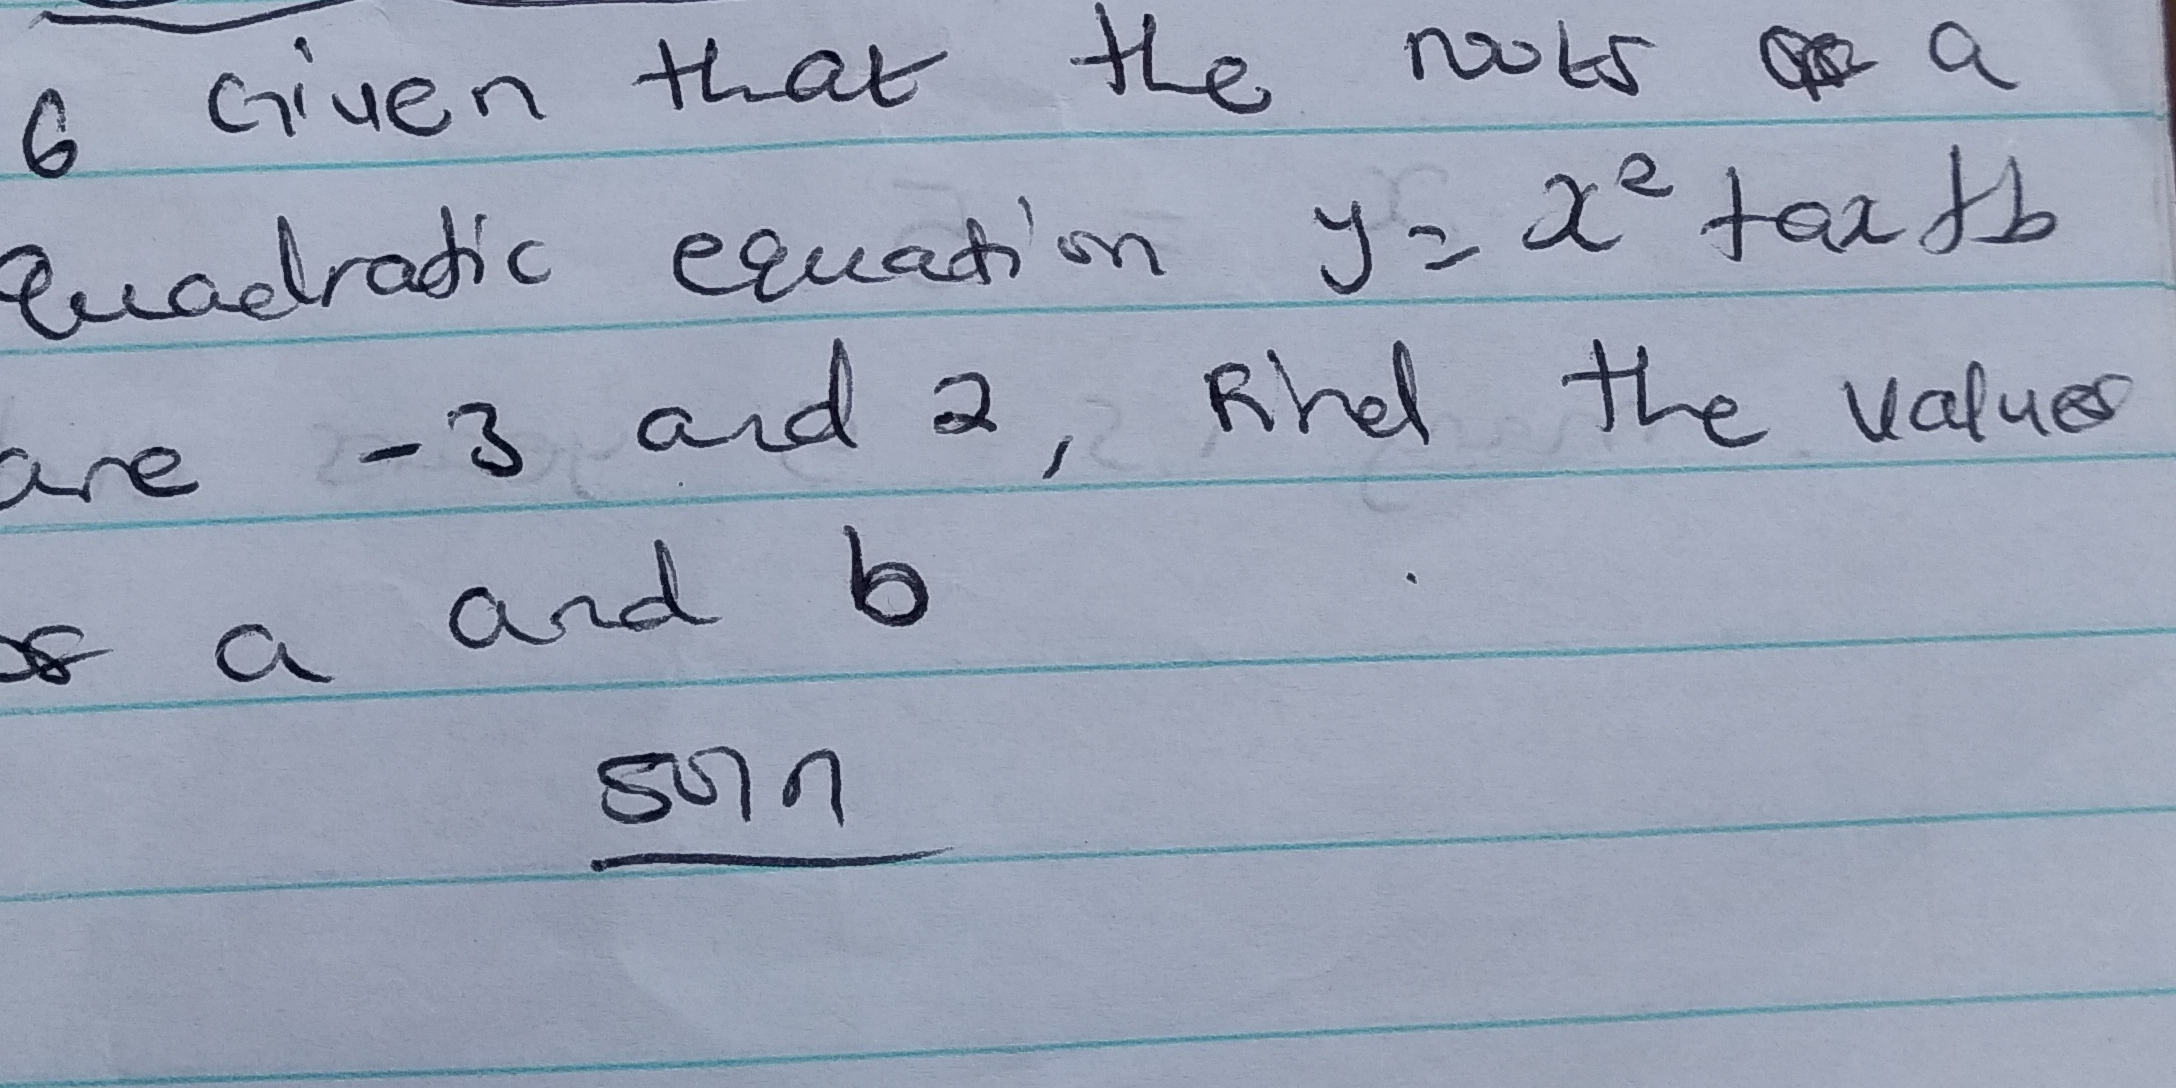 6 Given that the roots of a
Quadratic equation y = x² + ax + b
are -3 and 2, Find the values
of a and b
soln